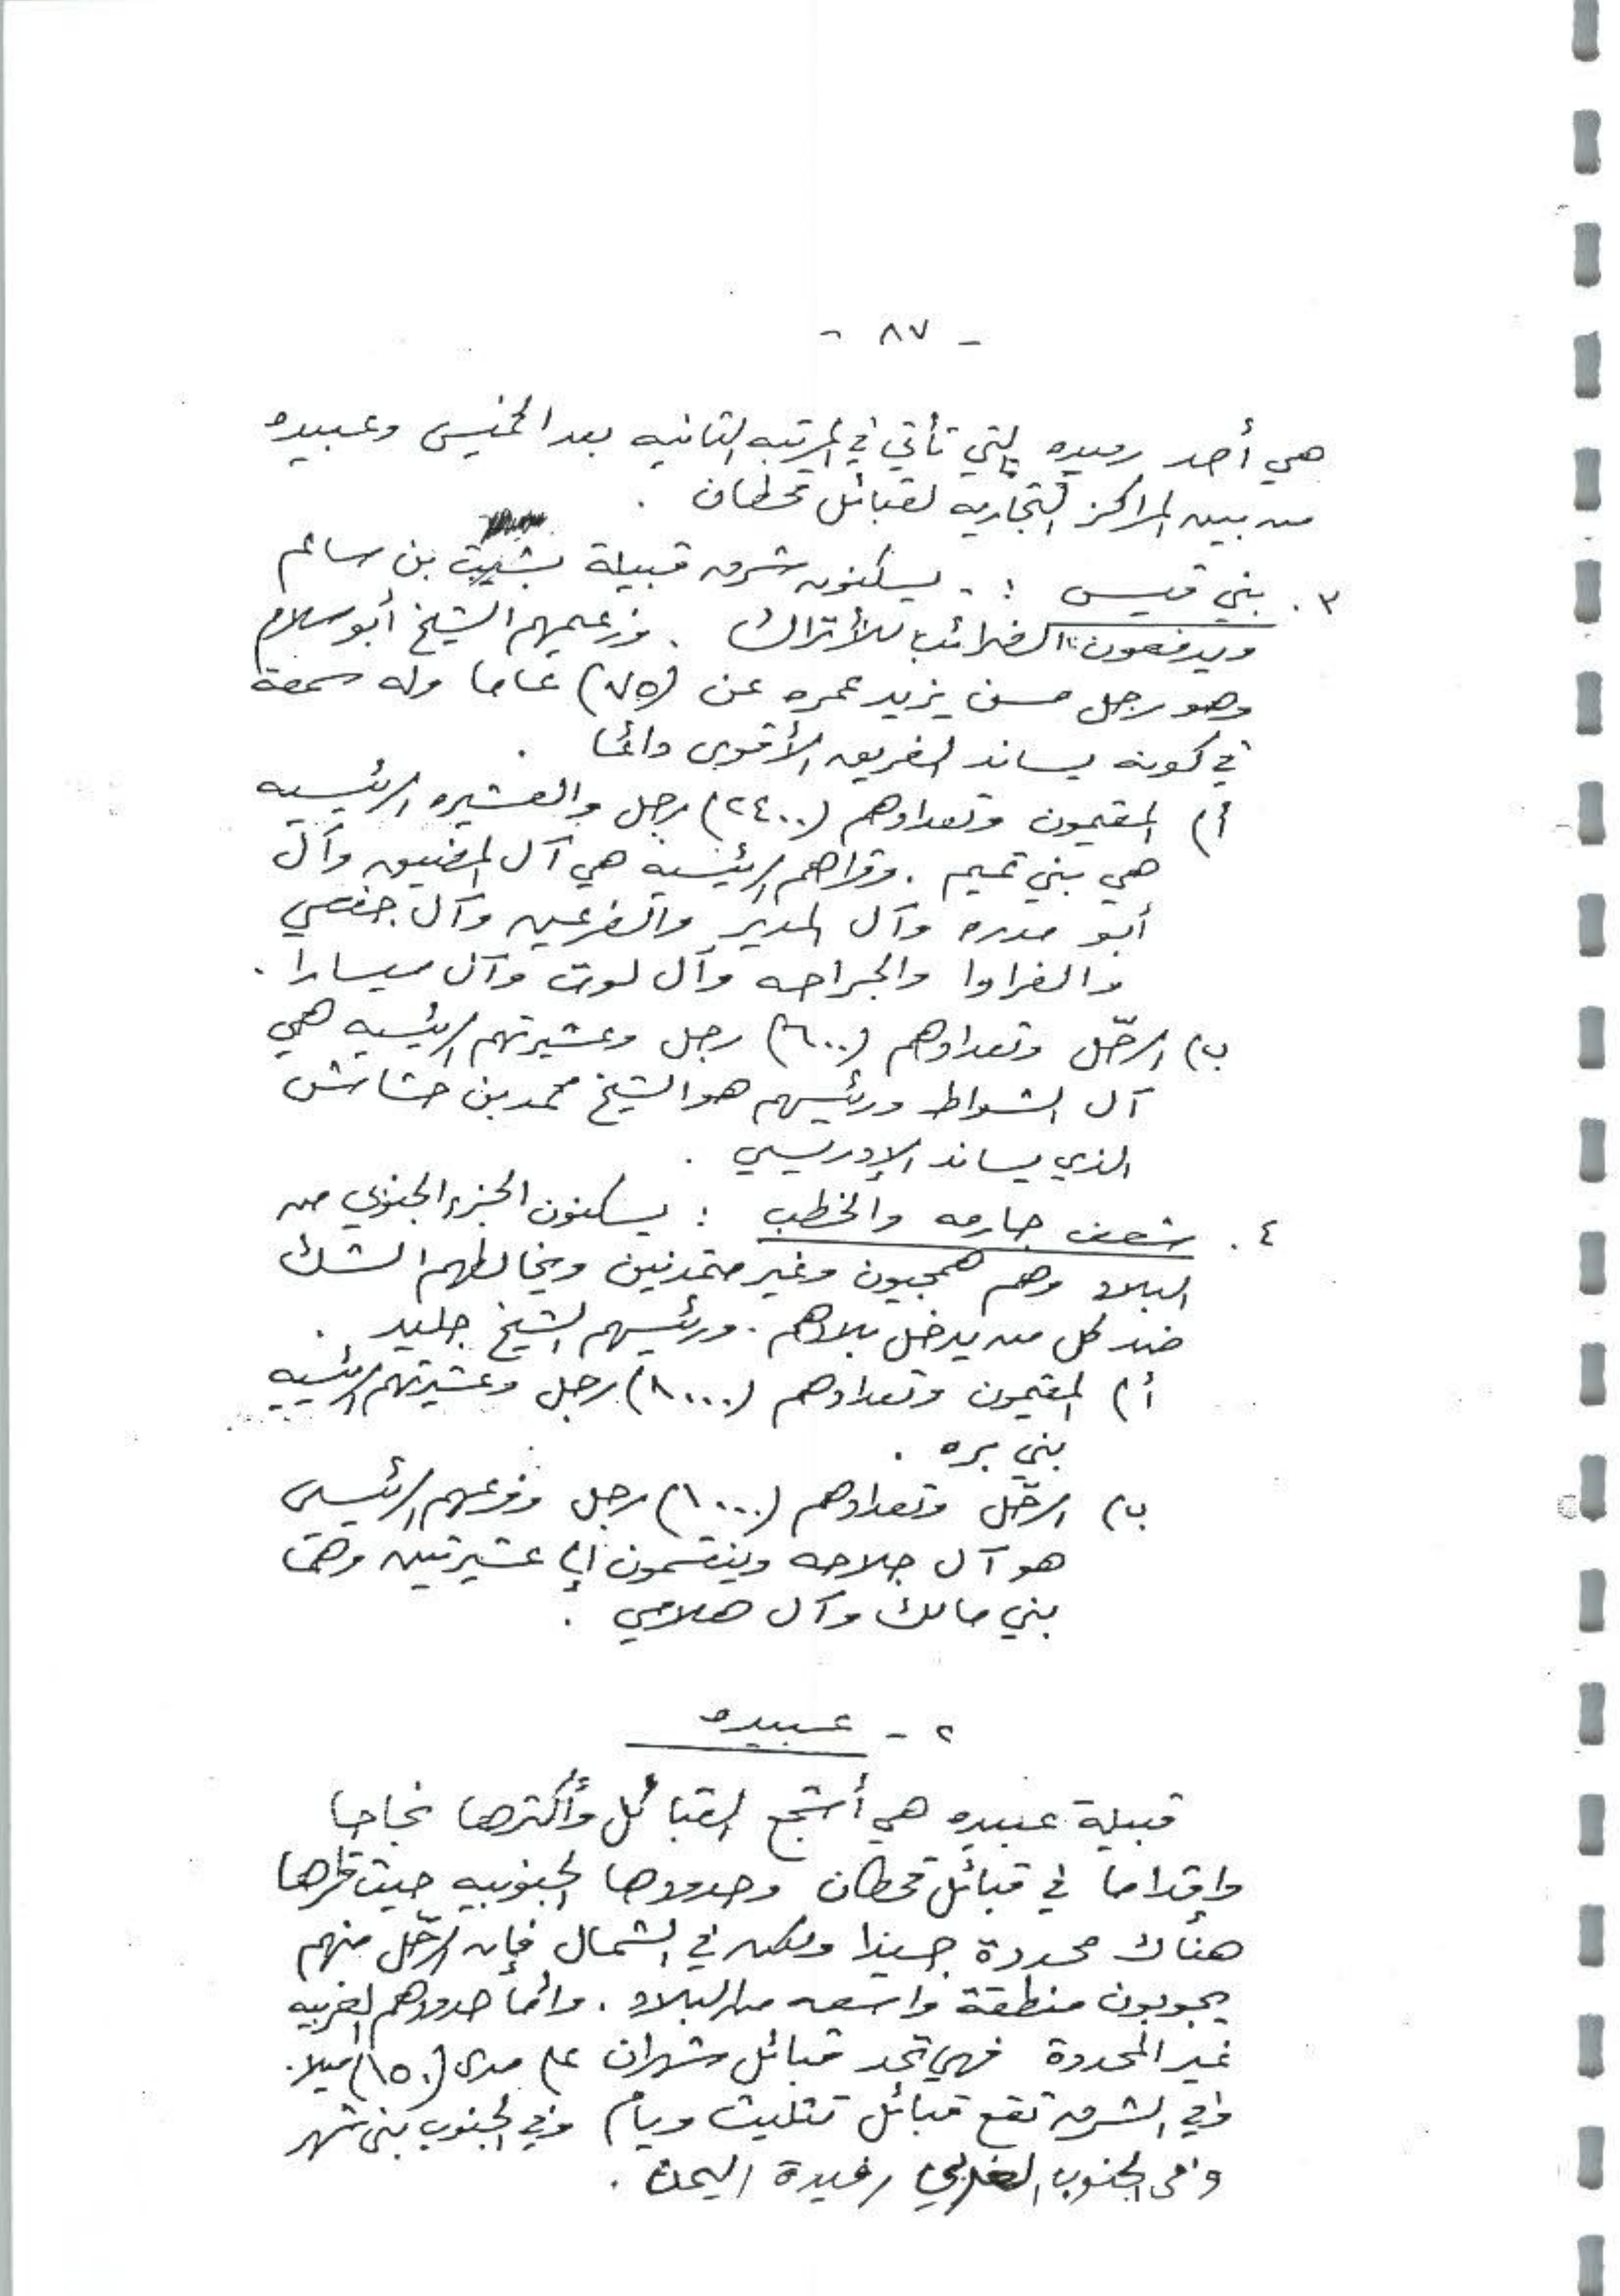 - ٨٧ -
هي أحد رفيده التي تأتي في المرتبه الثانيه بعد الخميس وعبيده
من بين المراكز التجاريه لقبائل قحطان .
٣ . بني قيس : - يسكنون شرق قبيلة بشيت بن سالم
ويدفعون الضرائب للأتراك . وزعيمهم الشيخ أبو سلام
وهو رجل مسن يزيد عمره عن (٧٥) عاما وله سمعة
في كونه يساند الفريق الأقوى دائما .
أ) المقيمون وتعدادهم (٢٤٠٠) رجل والعشيره الرئيسيه
هي بني تميم . وقراهم الرئيسيه هي آل المضيق وآل
أبو مدره وآل المدير والفرعين وآل جفصي
والفراوا والجراحه وآل لوت وآل ميسارا .
ب) الرحّل وتعدادهم (٦٠٠) رجل وعشيرتهم الرئيسيه هي
آل الشواط ورئيسهم هو الشيخ محمد بن حشاش
الذي يساند الإدريسي .
٤ . شعف جارمه والخطب : يسكنون الجزء الجنوبي من
البلاد وهم همجيون وغير متمدنين ويخالطهم الشك
ضد كل من يدخل بلادهم . ورئيسهم الشيخ جليد .
أ) المقيمون وتعدادهم (٨٠٠٠) رجل وعشيرتهم الرئيسيه
بني بره .
ب) الرحّل وتعدادهم (١٠٠٠) رجل وفرعهم الرئيسي
هو آل جلاحه وينقسمون إلى عشيرتين وهما
بني مالك وآل هلامي .
٢ - عبيده
قبيلة عبيده هي أشجع القبائل وأكثرها نجاحا
وإقداما في قبائل قحطان وحدودها الجنوبيه حيث قراها
هناك محددة جيدا ولكن في الشمال فإن الرحّل منهم
يجوبون منطقة واسعه من البلاد . وأما حدودهم الغربيه
غير المحددة فهي تحد قبائل شهران على مدى (١٥٠) ميلا .
وفي الشرق تقع قبائل تثليث ويام وفي الجنوب بني شهر
وفي الجنوب الغربي رفيدة اليمن .